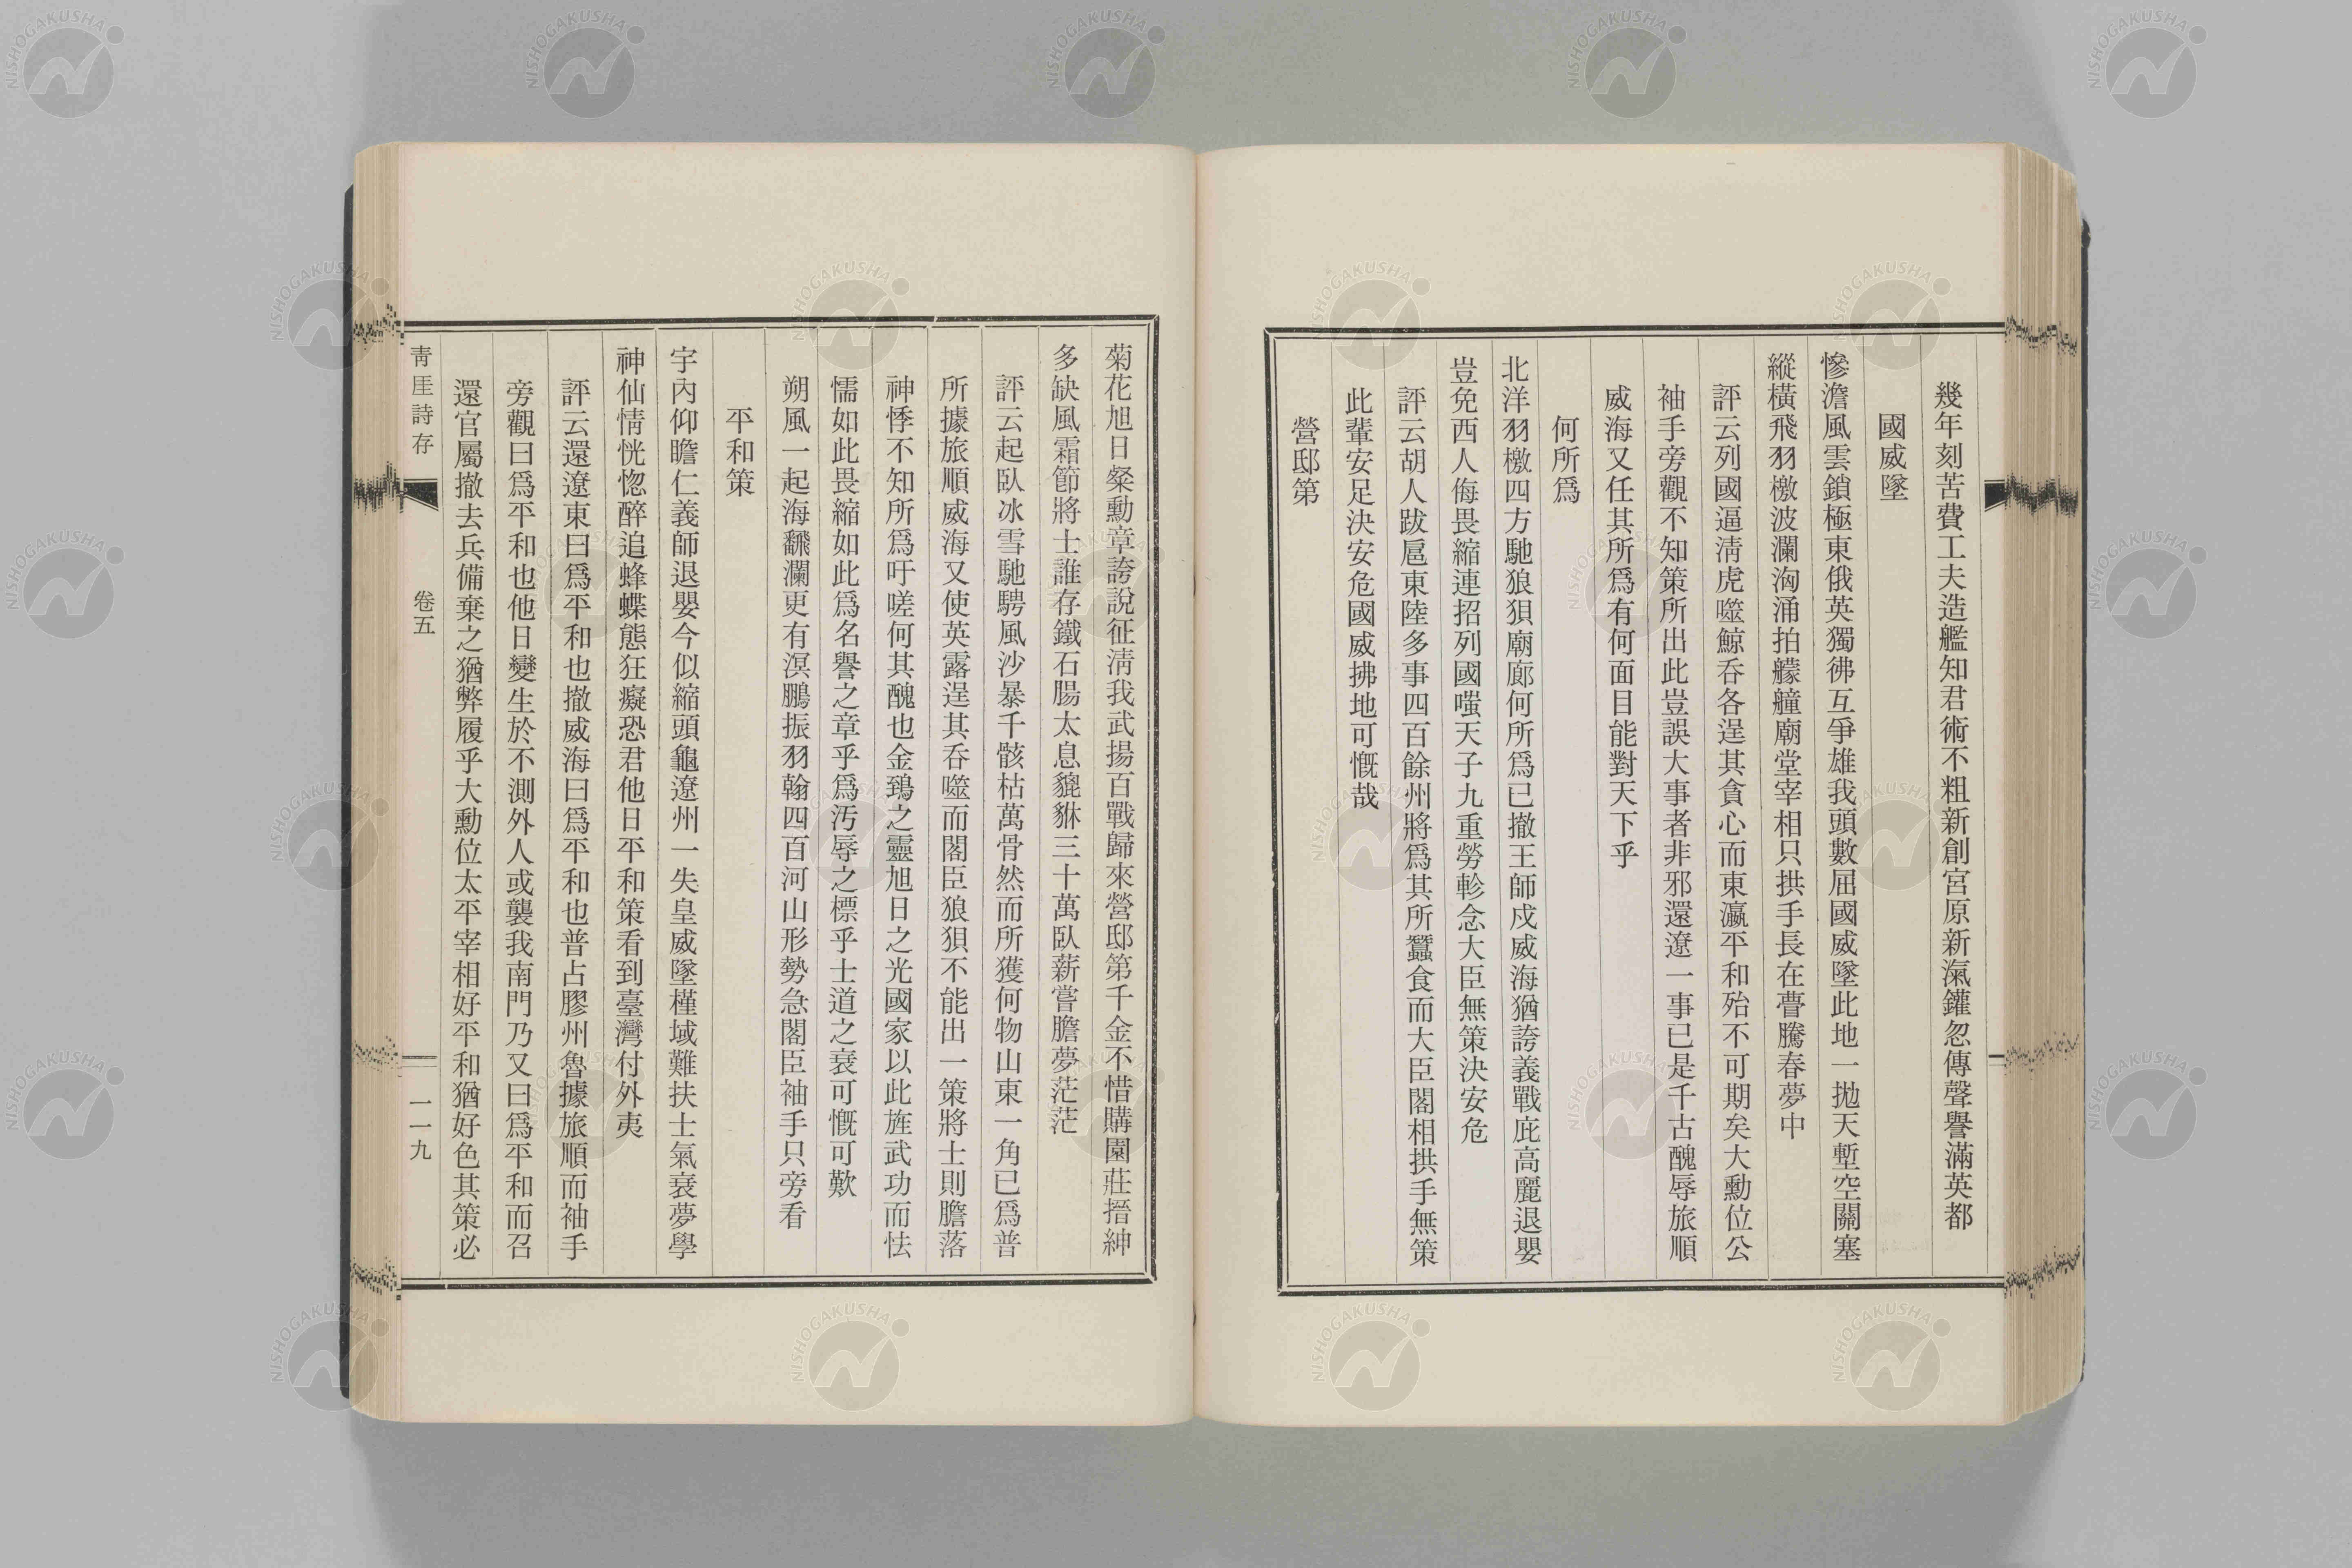 幾年刻苦費工夫造艦知君術不粗新創宮原新滊鑵忽傳聲譽滿英都
國威墜
慘澹風雲鎖極東俄英獨彿互爭雄我頭數屈國威墜此地一拋天塹空關塞
縱橫飛羽檄波瀾洶涌拍艨艟廟堂宰相只拱手長在瞢騰春夢中
評云列國逼淸虎噬鯨呑各逞其貪心而東瀛平和殆不可期矣大勳位公
袖手旁觀不知策所出此豈誤大事者非邪還遼一事已是千古醜辱旅順
威海又任其所爲有何面目能對天下乎
何所爲
北洋羽檄四方馳狼狽廟廊何所爲已撤王師戍威海猶誇義戰庇高麗退嬰
豈免西人侮畏縮連招列國嗤天子九重勞軫念大臣無策決安危
評云胡人跋扈東陸多事四百餘州將爲其所蠶食而大臣閣相拱手無策
此輩安足決安危國威拂地可慨哉
營邸第
菊花旭日粲勳章誇說征淸我武揚百戰歸來營邸第千金不惜購園莊搢紳
多缺風霜節將士誰存鐵石腸太息貔貅三十萬臥薪嘗膽夢茫茫
評云起臥冰雪馳騁風沙暴千骸枯萬骨然而所獲何物山東一角已爲普
所據旅順威海又使英露逞其呑噬而閣臣狼狽不能出一策將士則膽落
神悸不知所爲吁嗟何其醜也金鵄之靈旭日之光國家以此旌武功而怯
懦如此畏縮如此爲名譽之章乎爲汚辱之標乎士道之衰可慨可歎
朔風一起海飜瀾更有溟鵬振羽翰四百河山形勢急閣臣袖手只旁看
平和策
宇內仰瞻仁義師退嬰今似縮頭龜遼州一失皇威墜槿域難扶士氣衰夢學
神仙情恍惚醉追蜂蝶態狂癡恐君他日平和策看到臺灣付外夷
評云還遼東曰爲平和也撤威海曰爲平和也普占膠州魯據旅順而袖手
旁觀曰爲平和也他日變生於不測外人或襲我南門乃又曰爲平和而召
還官屬撤去兵備棄之猶弊履乎大勳位太平宰相好平和猶好色其策必
靑厓詩存 卷五 一一九